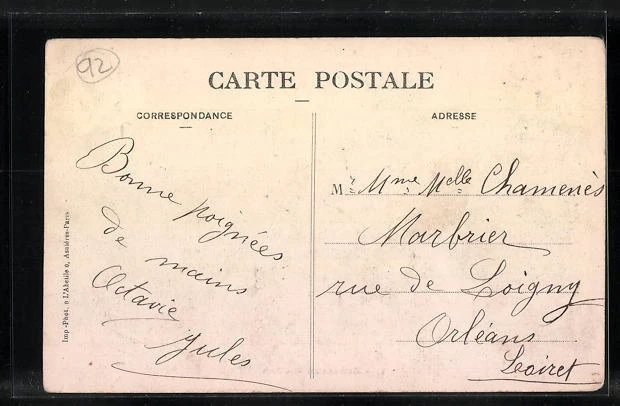 92
CARTE POSTALE
CORRESPONDANCE
ADRESSE
Bonne poignées
de mains
Octavie
Jules
M Mme Melle Chamenès
Marbrier
rue de Loigny
Orléans
Loiret
Imp.-Phot. « L'Abeille », Asnières-Paris